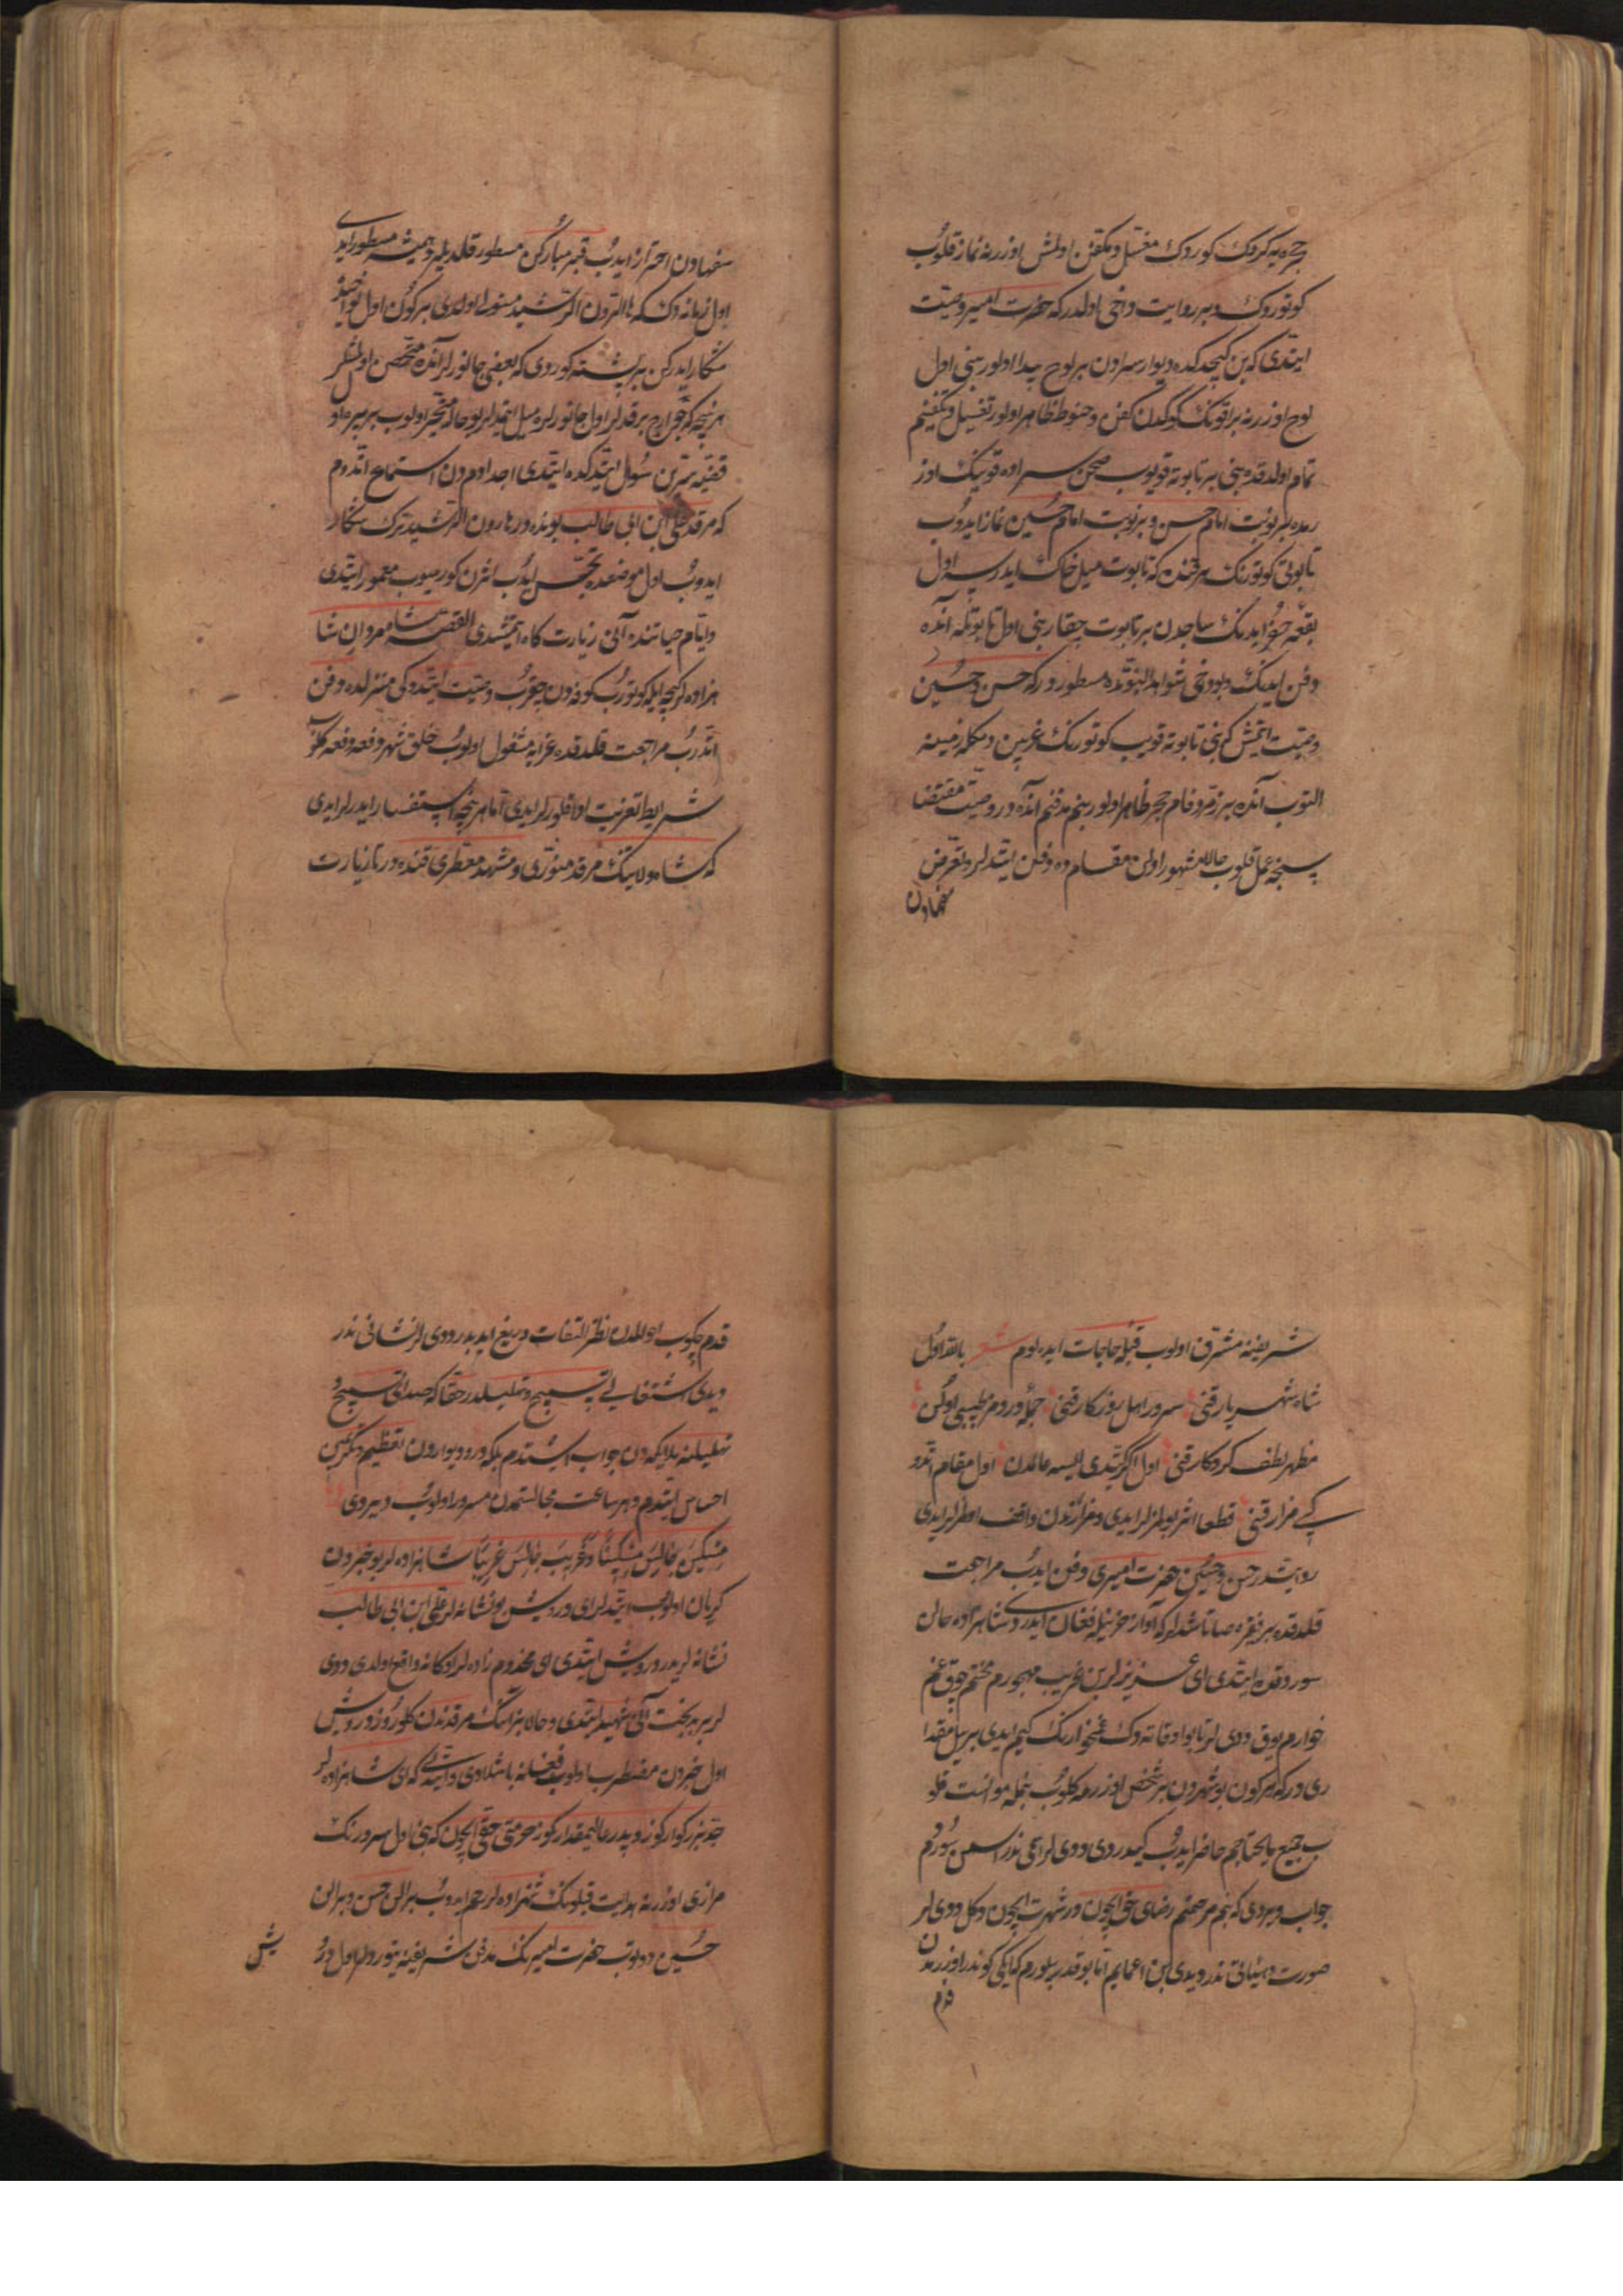 حجره‌یه کردک کوردک مغسّل و مکفّن اولمش اوزرینه نماز قلوب
کوتوردک و بر روایت داخی اولدرکه حضرت امیر وصیت
ایتدی که بن کیجدکده دیوار سرادن بر لوح پیدا اولور بنی اول
لوح اوزرینه براقونک کوکدن کفن و حنوط ظاهر اولور تغسیل و تکفینم
تمام اولدقده بنی بر تابوته قویوب صحن سراده قوینک اوز
رمده بر نوبت امام حسن و بر نوبت امام حسین نماز ایدوب
تابوتی کوتورنک هر قنده که تابوت میل خاک ایدرسه اول
بقعه حفر ایدنک ساجدن بر تابوت چقار بنی اول تابوتله آنده
دفن ایدنک و بو دخی شواهد النبوّتده مسطوردر که حسن و حسین
وصیت ایتمش که بنی تابوته قویب کوتورنک غریین دمکله زمینه
التوب آنده بر زمرّد فام حجر ظاهر اولور بنم مدفنم آنده در وصیت مقتضا
سنجه عمل قلوب حالا مشهور اولن مقامده دفن ایتدلر و تعرض
سفهادن
سفهادن احتراز ایدوب قبر مبارکن مسطور قلدیلر و همیشه مسطور ایدی
اول زمانه دک که هارون الرشید مستولی اولدی بر کون اول نواحیده
شکار ایدرکن بر پشته کوردی که بعضی جانورلر آنده متحصن اولمشلر
هر نیچه که جوارح برقدلر اول جانورلره میل ایتمدلر بو حاله متحیر اولوب بر پیره او
قضیه سرّین سؤال ایتدکده ایتدی اجدادمدن استماع اتدوم
که مرقد علی ابن ابی طالب بونده در هارون الرشید ترک شکار
ایدوب اول موضعده تجسس ایدوب اثرن کوریوب معمور ایتدی
و ایام حیاتنده آنی زیارت کاه ایتمشدی القصه شاه مردان شا
هزاده لر کیجه ایله کوتورب کوفه‌دن چیقوب وصیت ایتدوکی منزلده دفن
اتدرب مراجعت قلدقده عزایه مشغول اولوب خلق شهر دفعه دفعه کلوب
شرایط تعزیت ادا قلورلر ایدی اما هر نیچه استفسار ایدرلر ایدی
که شاه ولایتک مرقد منوّری و مشهد معطری قنده در تا زیارت
شریفینه مشرف اولوب قبله حاجات ایده‌لوم شعر بالله اول
شاه شهریار قنی سرور اهل روزکار قنی جمله دردمه طبیبی اوکن
مظهر لطف کردکار قنی اول اکر کتدی ایسه عالمدن اول مقام اتدو
کی مزار قنی قطعا اثر بولمزلر ایدی و مزارندن واقف اولمزلر ایدی
روایتدر حسن و حسین حضرت امیری دفن ایدب مراجعت
قلدقده بر فقره صاتاشدلر که آواز حزینله فغان ایدردی شاهزاده حالن
سوردقده ایتدی ای عزیزلر بن غریب مهجورم محنتم چوق غم
خوارم یوق ددی لر تا بو اوقاته دک غمخوارنک کیم ایدی بر ییل مقدا
ری در که هر کون بو شهردن بر شخص اوزرمه کلوب بنمله موانست قلو
ب جمیع مایحتاجم حاضر ایدوب کیدردی ددی لر اسمی ندر اسمن سوردم
جواب ویردی که بنم مرحمتم رضای حق ایچون در شهرت ایچون دکل ددی لر
صورت و هیئاتی ندر دیدی بن اعمایم اما بو قدر بیلورم کیا کی کوندر اوزرمدن
قدم
قدم چکوب احوالمدن نظر التفات دریغ ایدبدر ددی لر نشانی ندر
دیدی اشتغالی تسبیح و تهلیلدر حقا که صدای تسبیح و
تهلیلنه ملایکه‌دن جواب ایشتدم بلکه در و دیواردن تعظیم و تکریمین
احساس ایتدم و هر ساعت مجالستمدن مسرور اولوب دیردی
مِسْکِینٌ جَالِسَ مِسْکِینًا وَ غَرِیبٌ جَالَسَ غَرِیبًا شاهزاده لر بو خبردن
کریان اولوب ایتدلر ای درویش بو نشانه لر علی ابن ابی طالب
نشانه لریدر درویش ایتدی ای مخدوم زاده لر اوکا نه واقع اولدی ددی
لر بر بدبخت آنی شهید ایتدی و حالا بز انک مرقدندن کلورز درویش
اول خبردن مضطرب اولوب فغانه باشلادی و ایتدی که ای شاهزاده لر
جد بزرکوارکوز و پدر عالیمقدارکوز حرمتی حقی ایچون که بنی اول سرورنک
مزاری اوزرینه هدایت قیلونک شهزاده لر رحم ایدوب بر الن حسن و بر الن
حسین دوتوب حضرت امیرنک مدفن شریفینه یتوردیلر اول درو
یش